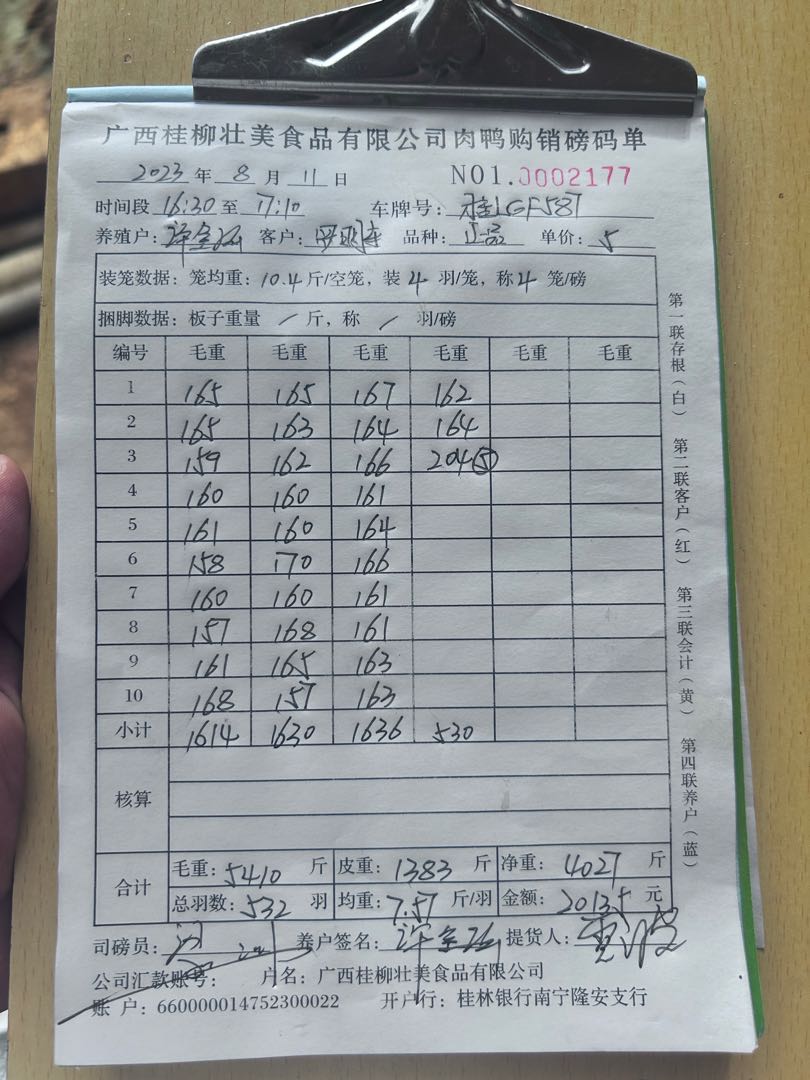 广西桂柳壮美食品有限公司肉鸭购销磅码单
2023 年 8 月 11 日 NO1.0002177
时间段 16:30 至 17:10 车牌号: 桂LGF587
养殖户: 客户: 品种: 正品 单价: 5
装笼数据: 笼均重: 10.4 斤/空笼, 装 4 羽/笼, 称 4 笼/磅
捆脚数据: 板子重量 / 斤, 称 / 羽/磅
编号 毛重 毛重 毛重 毛重 毛重 毛重
1 165 165 167 162
2 165 163 164 164
3 159 162 166 204⑤
4 160 160 161
5 161 160 164
6 158 170 166
7 160 160 161
8 157 168 161
9 161 165 163
10 168 157 163
小计 1614 1630 1636 530
核算
合计
毛重: 5410 斤 皮重: 1383 斤 净重: 4027 斤
总羽数: 532 羽 均重: 7.57 斤/羽 金额: 20135 元
司磅员: 养户签名: 提货人:
公司汇款账号: 户名: 广西桂柳壮美食品有限公司
账 户: 660000014752300022 开户行: 桂林银行南宁隆安支行
第一联存根(白) 第二联客户(红) 第三联会计(黄) 第四联养户(蓝)